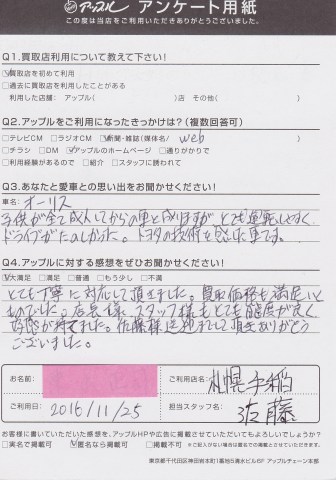 アップル アンケート用紙
この度は当店をご利用いただきありがとうございました。
Q1.買取店利用について教えて下さい!
☑買取店を初めて利用
□過去に買取店を利用したことがある
利用した店舗: アップル( )店 その他( )
Q2.アップルをご利用になったきっかけは?(複数回答可)
□テレビCM □ラジオCM ☑新聞・雑誌(媒体名/ web )
□チラシ □DM ☑アップルのホームページ □通りがかりで
□利用経験があるので □紹介 □スタッフに誘われて
Q3.あなたと愛車との思い出をお聞かせください!
車名: オーリス
子供が全て成人してからの車と成りますが、とても運転しやすく
ドライブがたのしかった。トヨタの技術を感じた車です。
Q4.アップルに対する感想をぜひお聞かせください!
☑大満足 □満足 □普通 □もう少し □不満
とても丁寧に対応して頂きました。買取価格も満足いく
ものでした。店長様、スタッフ様もとても態度が良く
好感が持てました。佐藤様 頂きありがとう
ございました。
お名前:
ご利用店名: 札幌手稲
ご利用日: 2016/11/25
担当スタッフ名: 佐藤
お客様に書いていただいた感想を、アップルHPや広告に掲載させていただいてもよろしいでしょうか?
□実名で掲載可 ☑匿名なら掲載可 □掲載不可 ※ご記入がない場合は匿名での掲載とさせていただきます。
東京都千代田区神田岩本町1番地5清水ビル6F アップルチェーン本部